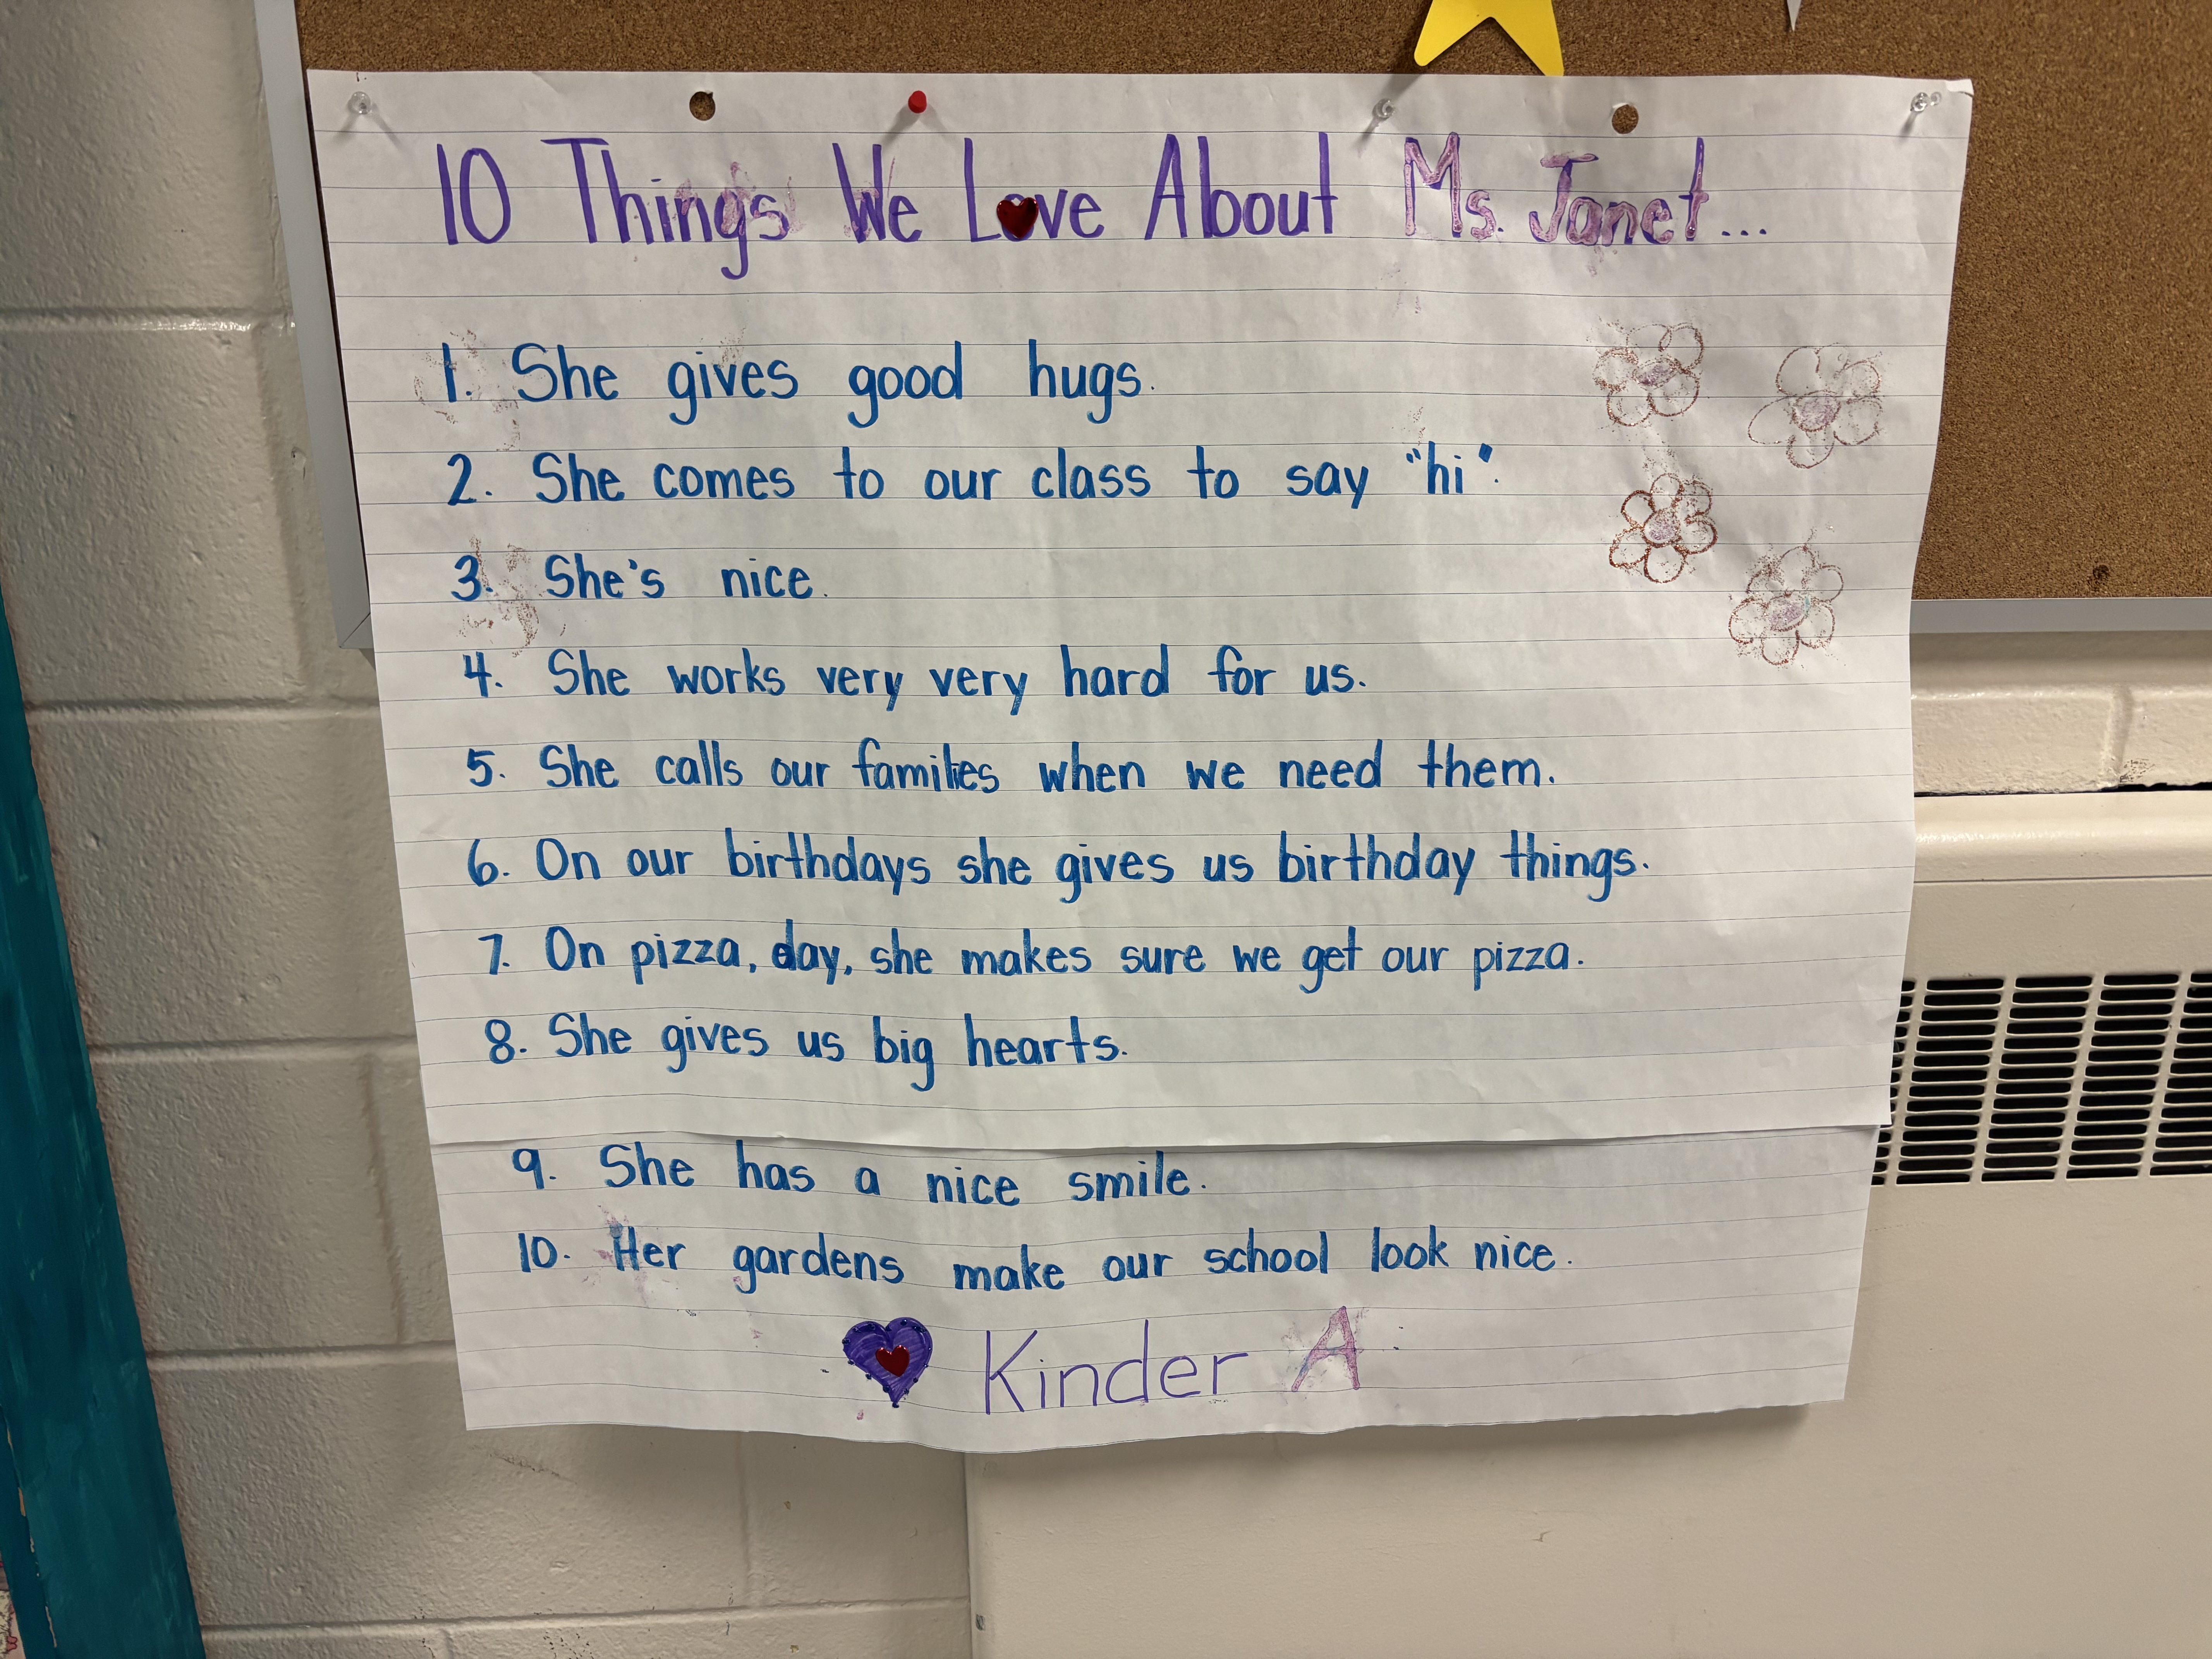 10 Things We Love About Ms. Janet...
1. She gives good hugs.
2. She comes to our class to say "hi".
3. She's nice.
4. She works very very hard for us.
5. She calls our families when we need them.
6. On our birthdays she gives us birthday things.
7. On pizza, day, she makes sure we get our pizza.
8. She gives us big hearts.
9. She has a nice smile.
10. Her gardens make our school look nice.
Kinder A